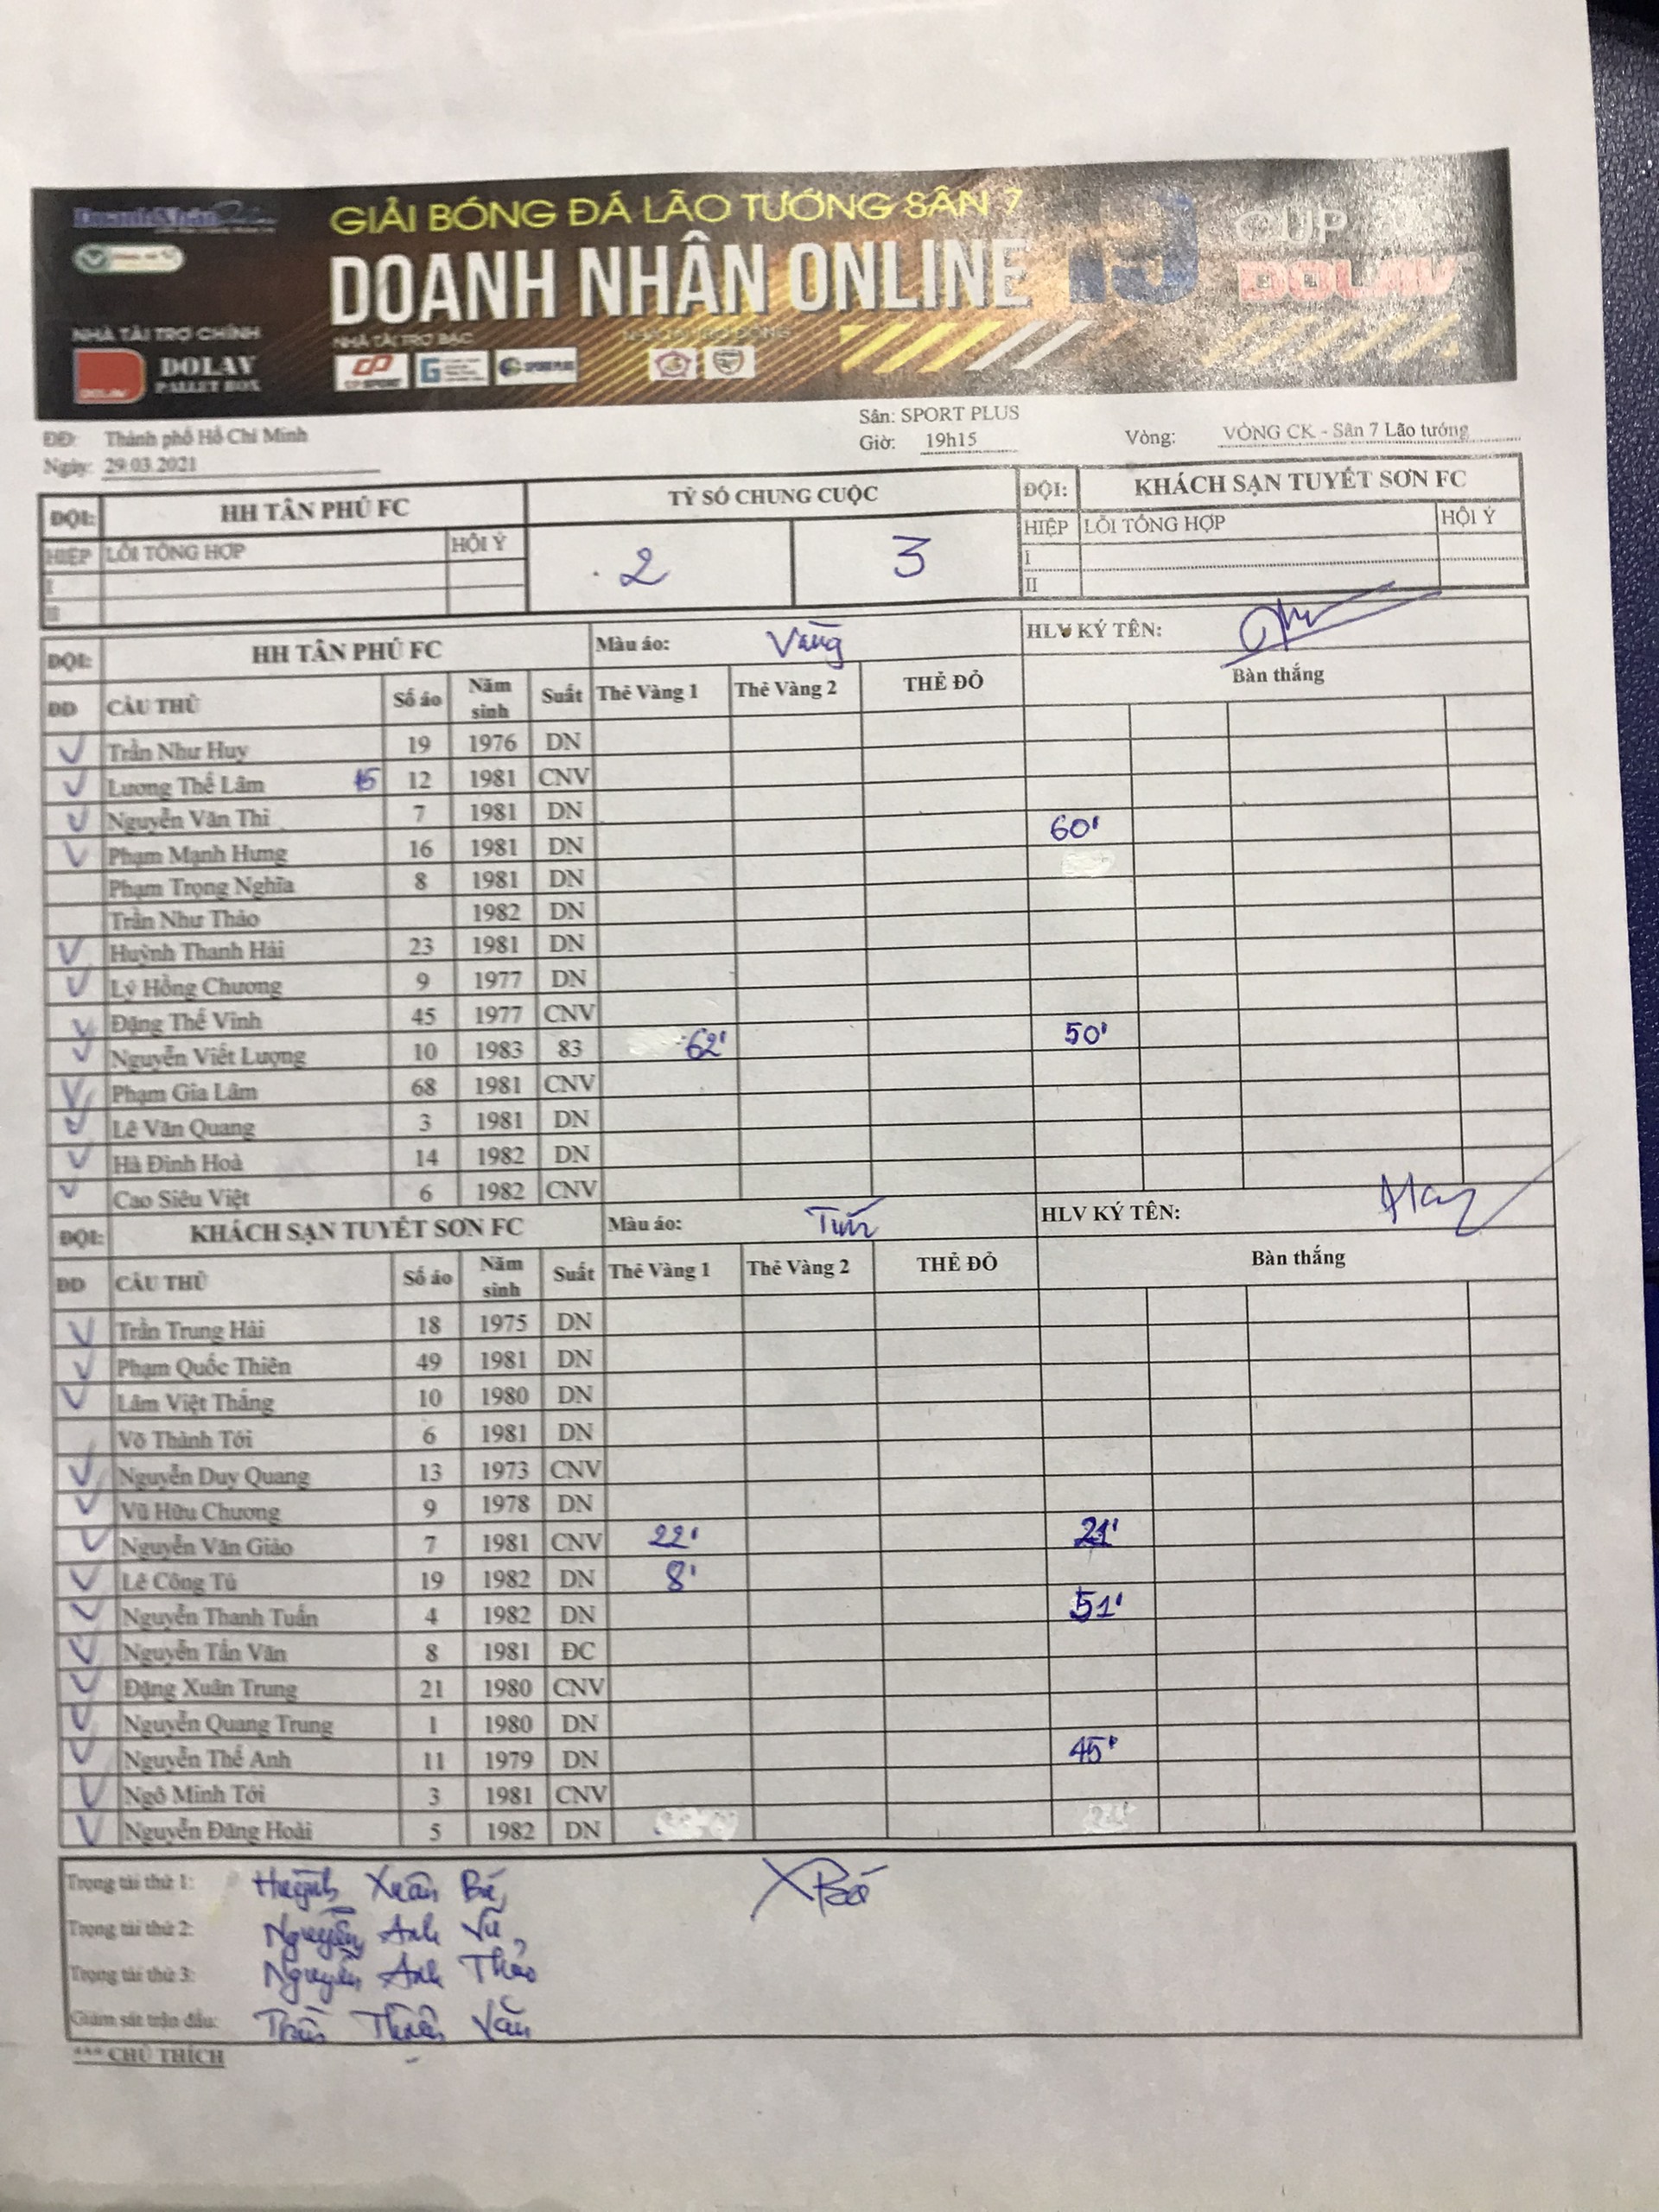 GIẢI BÓNG ĐÁ LÃO TƯỚNG SÂN 7
DOANH NHÂN ONLINE 13
CUP
DOLAV
NHÀ TÀI TRỢ CHÍNH
DOLAV
PALLET BOX
NHÀ TÀI TRỢ BẠC
ĐĐ: Thành phố Hồ Chí Minh
Ngày: 29.03.2021
Sân: SPORT PLUS
Giờ: 19h15
Vòng: VÒNG CK - Sân 7 Lão tướng
ĐỘI: HH TÂN PHÚ FC TỶ SỐ CHUNG CUỘC ĐỘI: KHÁCH SẠN TUYẾT SƠN FC
HIỆP LỖI TỔNG HỢP HỘI Ý 2 3 HIỆP LỖI TỔNG HỢP HỘI Ý
I I
II II
ĐỘI: HH TÂN PHÚ FC Màu áo: Vàng HLV KÝ TÊN:
ĐD CẦU THỦ Số áo Năm sinh Suất Thẻ Vàng 1 Thẻ Vàng 2 THẺ ĐỎ Bàn thắng
Trần Như Huy 19 1976 DN
Lương Thế Lâm 15 12 1981 CNV
Nguyễn Văn Thi 7 1981 DN
Phạm Mạnh Hưng 16 1981 DN 60'
Phạm Trọng Nghĩa 8 1981 DN
Trần Như Thảo 1982 DN
Huỳnh Thanh Hải 23 1981 DN
Lý Hồng Chương 9 1977 DN
Đặng Thế Vinh 45 1977 CNV
Nguyễn Viết Lượng 10 1983 83 62' 50'
Phạm Gia Lâm 68 1981 CNV
Lê Văn Quang 3 1981 DN
Hà Đình Hoà 14 1982 DN
Cao Siêu Việt 6 1982 CNV
ĐỘI: KHÁCH SẠN TUYẾT SƠN FC Màu áo: Tím HLV KÝ TÊN:
ĐD CẦU THỦ Số áo Năm sinh Suất Thẻ Vàng 1 Thẻ Vàng 2 THẺ ĐỎ Bàn thắng
Trần Trung Hải 18 1975 DN
Phạm Quốc Thiên 49 1981 DN
Lâm Việt Thắng 10 1980 DN
Võ Thành Tới 6 1981 DN
Nguyễn Duy Quang 13 1973 CNV
Vũ Hữu Chương 9 1978 DN
Nguyễn Văn Giảo 7 1981 CNV 22' 21'
Lê Công Tú 19 1982 DN 8'
Nguyễn Thanh Tuấn 4 1982 DN 51'
Nguyễn Tấn Văn 8 1981 ĐC
Đặng Xuân Trung 21 1980 CNV
Nguyễn Quang Trung 1 1980 DN
Nguyễn Thế Anh 11 1979 DN 45'
Ngô Minh Tới 3 1981 CNV
Nguyễn Đăng Hoài 5 1982 DN
Trọng tài thứ 1: Huỳnh Xuân Bá XBá
Trọng tài thứ 2: Nguyễn Anh Vũ
Trọng tài thứ 3: Nguyễn Anh Thảo
Giám sát trận đấu: Trần Thiện Văn
*** CHÚ THÍCH